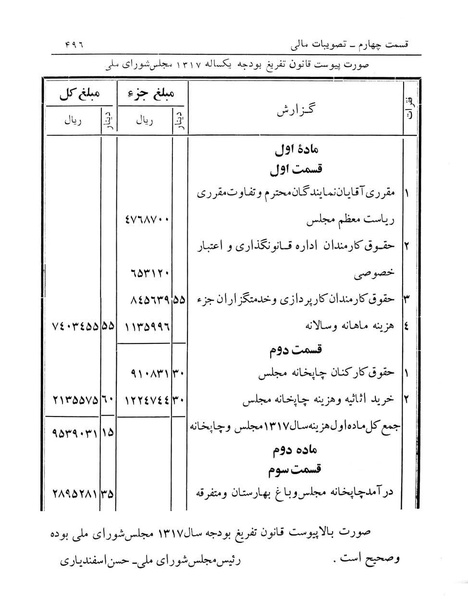 قسمت چهارم ــ تصویبات مالی ۴۹۶
صورت پیوست قانون تفریغ بودجه یکساله ۱۳۱۷ مجلس شورای ملی
فقرات گزارش مبلغ جزء مبلغ کل
دینار ریال دینار ریال
مادهٔ اول
قسمت اول
۱ مقرری آقایان نمایندگان محترم و تفاوت مقرری
ریاست معظم مجلس ۴۷۶۸۷۰۰
۲ حقوق کارمندان اداره قانونگذاری و اعتبار
خصوصی ۶۵۳۱۲۰
۳ حقوق کارمندان کارپردازی و خدمتگزاران جزء ۵۵ ۸۴۵۶۳۹
۴ هزینه ماهانه و سالانه ۱۱۳۵۹۹۶ ۵۵ ۷۴۰۳۴۵۵
قسمت دوم
۱ حقوق کارکنان چاپخانه مجلس ۳۰ ۹۱۰۸۳۱
۲ خرید اثاثیه و هزینه چاپخانه مجلس ۳۰ ۱۲۲۴۷۴۴ ۶۰ ۲۱۳۵۵۷۵
جمع کل ماده اول هزینه سال ۱۳۱۷ مجلس و چاپخانه ۱۵ ۹۵۳۹۰۳۱
ماده دوم
قسمت سوم
درآمد چاپخانه مجلس و باغ بهارستان و متفرقه ۳۵ ۲۸۹۵۲۸۱
صورت بالا پیوست قانون تفریغ بودجه سال ۱۳۱۷ مجلس شورای ملی بوده
و صحیح است . رئیس مجلس شورای ملی ــ حسن اسفندیاری